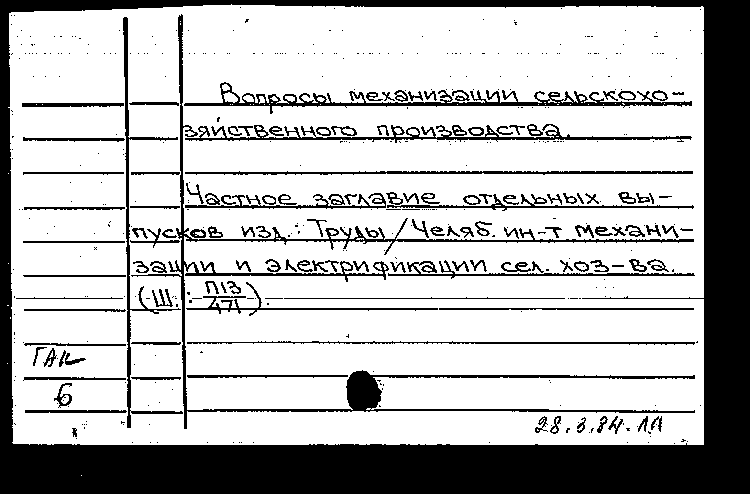 Вопросы механизации сельскохо-
зяйственного производства.
Частное заглавие отдельных вы-
пусков изд.: Труды / Челяб. ин-т механи-
зации и электрификации сел. хоз-ва.
(Ш.: П13/471).
ГАК
Б
28.3.84.